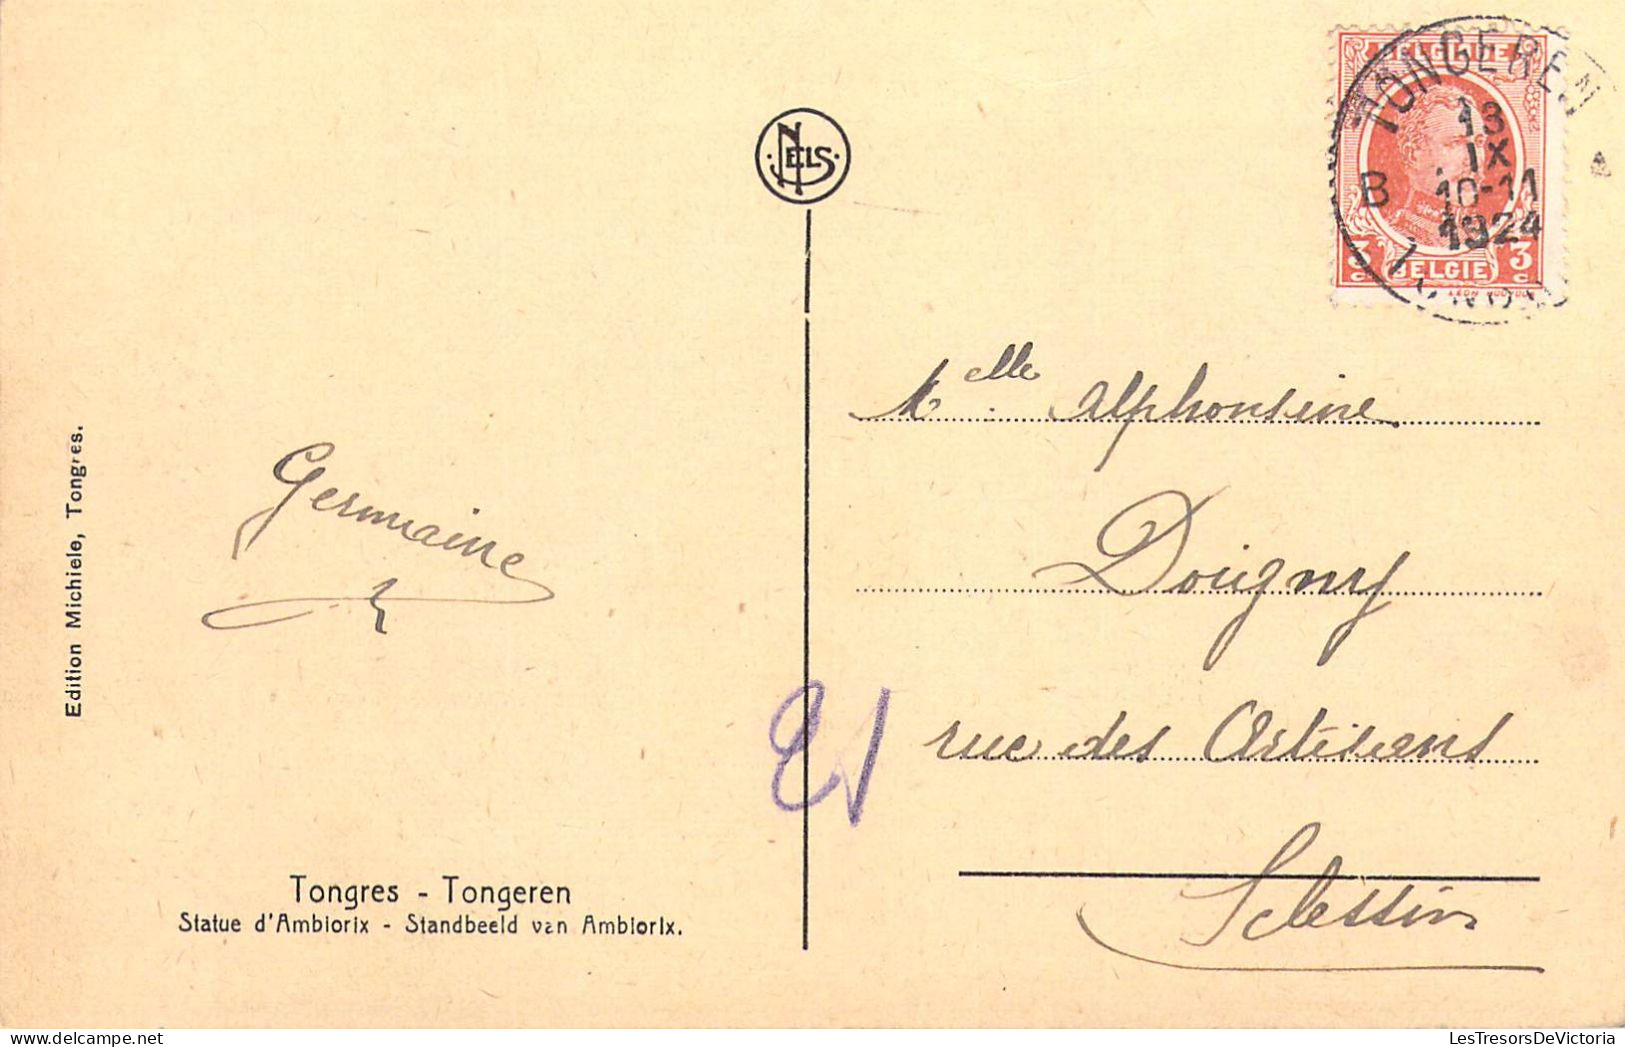 BELGIQUE
TONGEREN
13
IX
B 10-11
1924
3 c BELGIE 3 c
NELS
Melle Alphonsine
Doigny
rue des Artisans
Sclessin
Germaine
21
Edition Michiels, Tongres.
Tongres - Tongeren
Statue d'Ambiorix - Standbeeld van Ambiorix.
LesTresorsDeVictoria